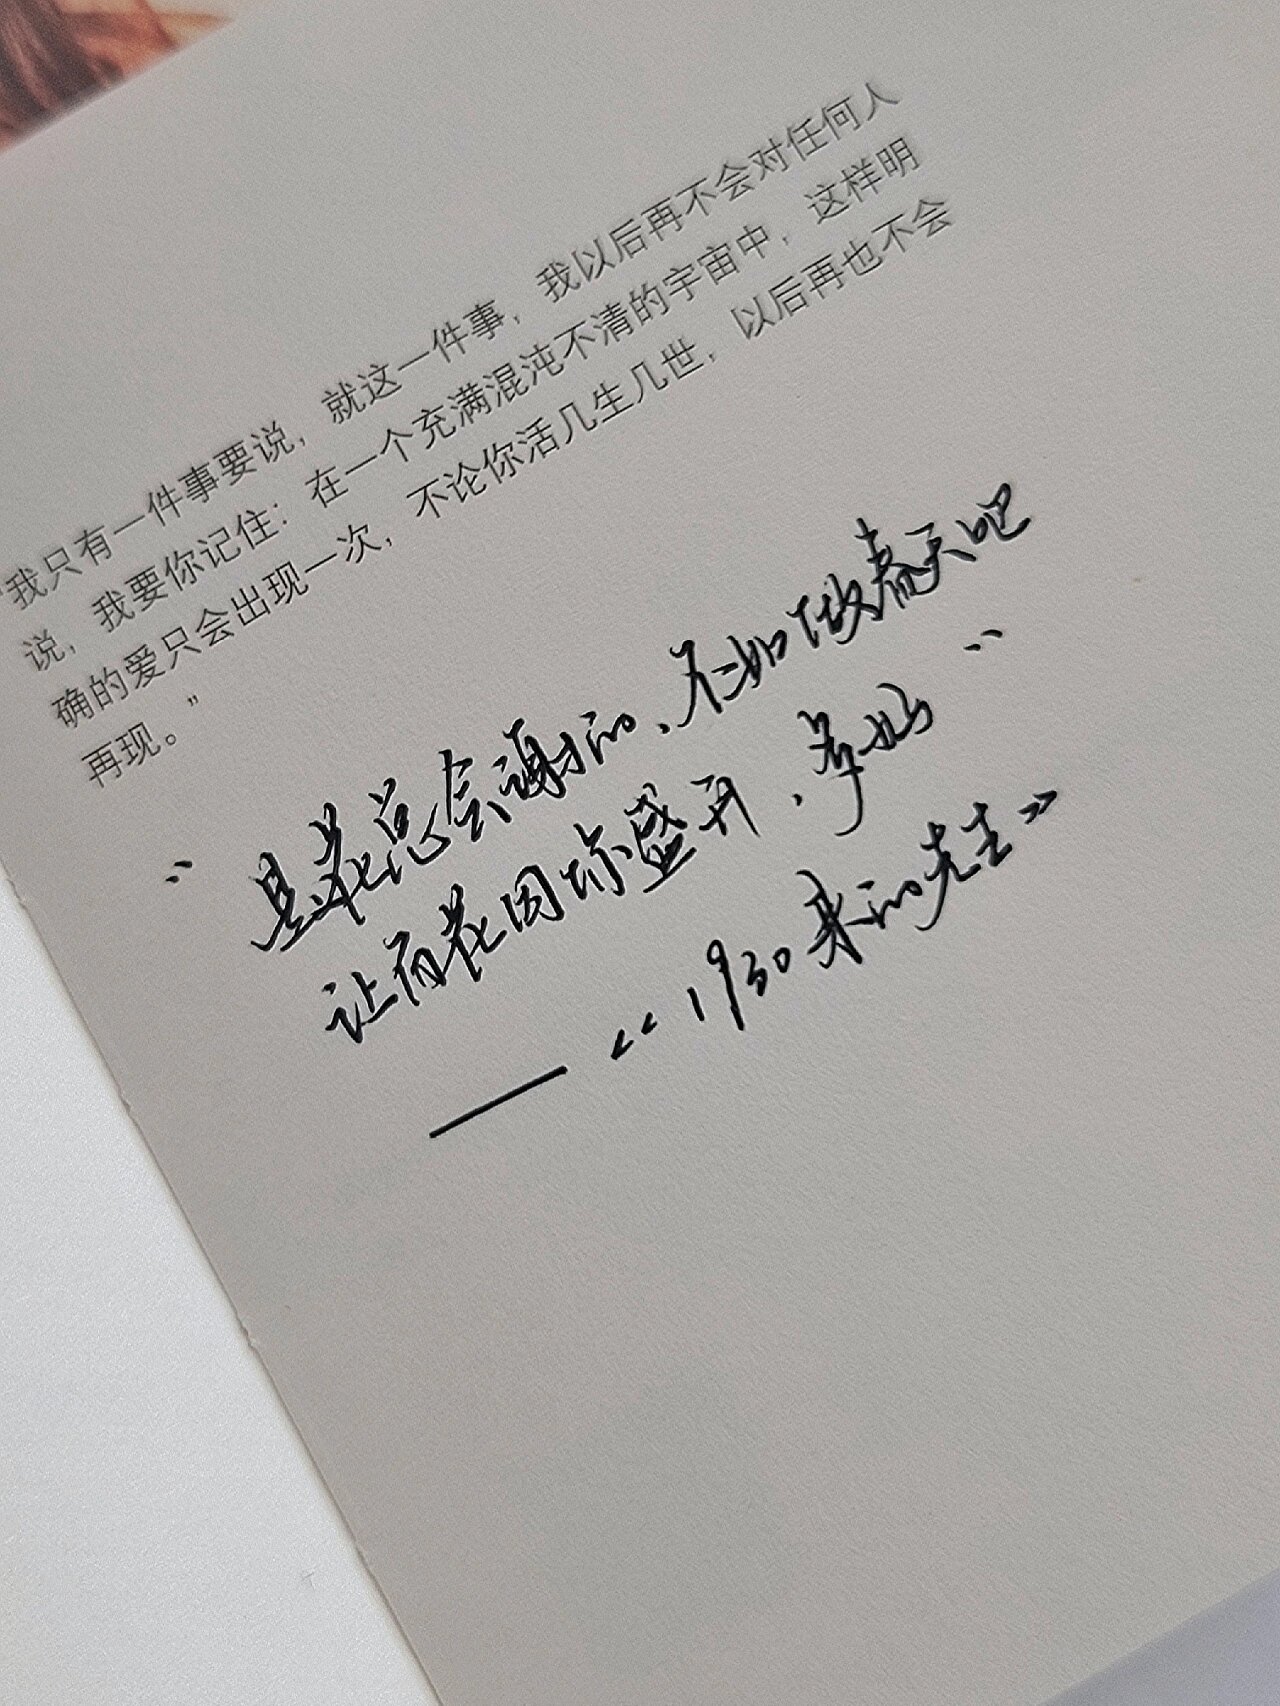 “我只有一件事要说，就这一件事，我以后再不会对任何人
说，我要你记住：在一个充满混沌不清的宇宙中，这样明
确的爱只会出现一次，不论你活几生几世，以后再也不会
再现。”
“是花总会谢的、不如做春天吧
让百花因你盛开、幸好”
——《1930来的先生》